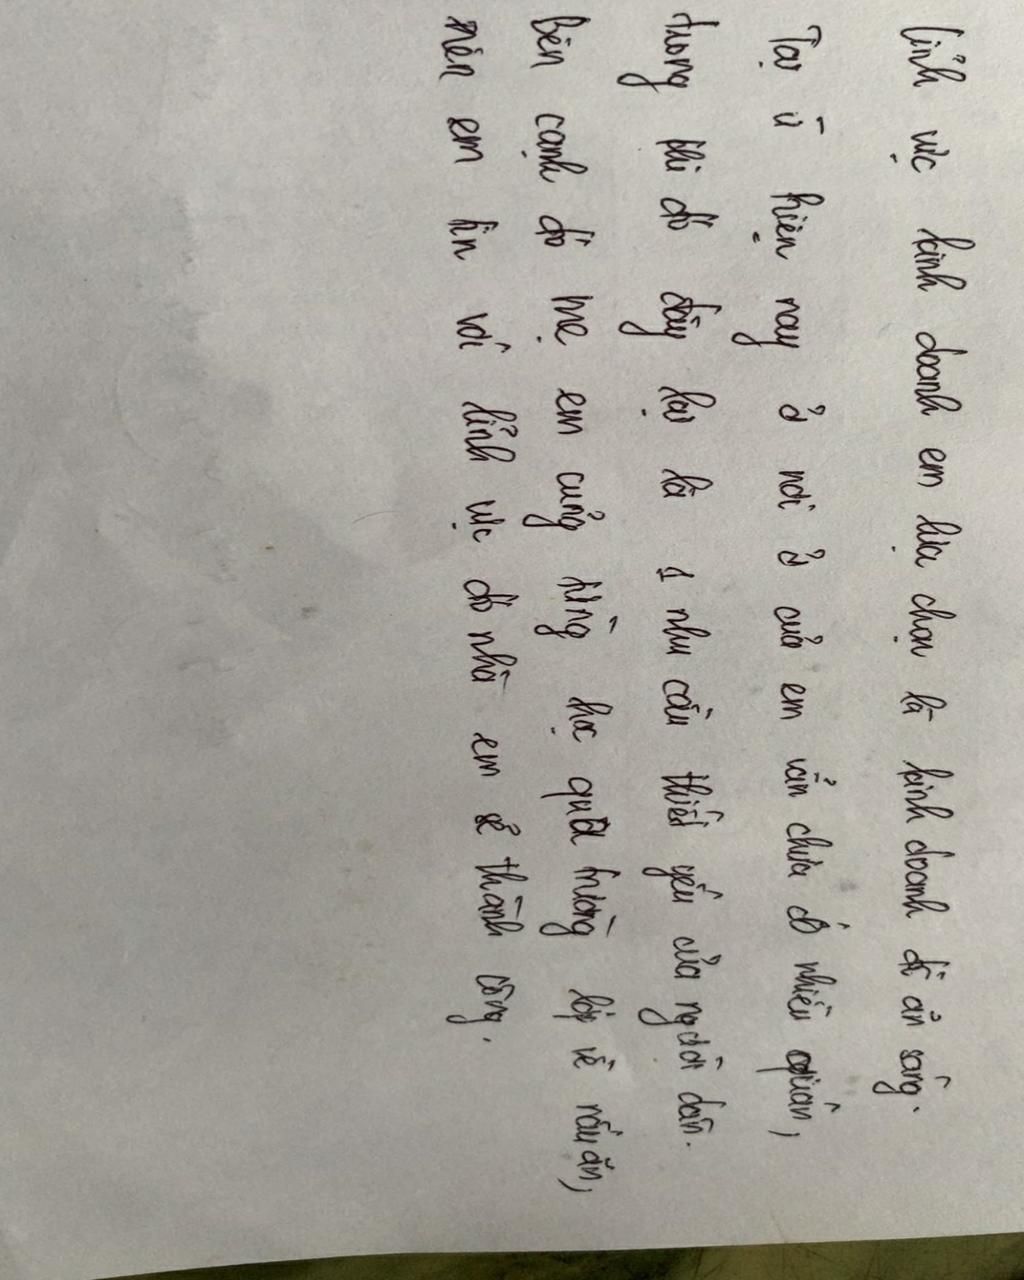 Lỉnh vực kinh doanh em lựa chọn là kinh doanh đồ ăn sáng.
Tại vì hiện nay ở nơi ở của em vẩn chưa có nhiều quán,
trong khi đó đây lại là 1 nhu cầu thiết yếu của người dân.
Bên cạnh đó mẹ em củng từng học qua trường lớp về nấu ăn,
nên em tin với lỉnh vực đó nhà em sẻ thành công.